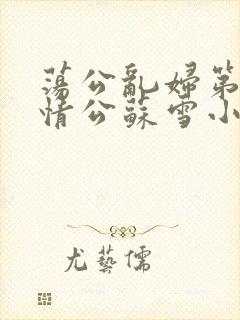 蕩公亂婦第
情公蘇雪小
尤藝儒